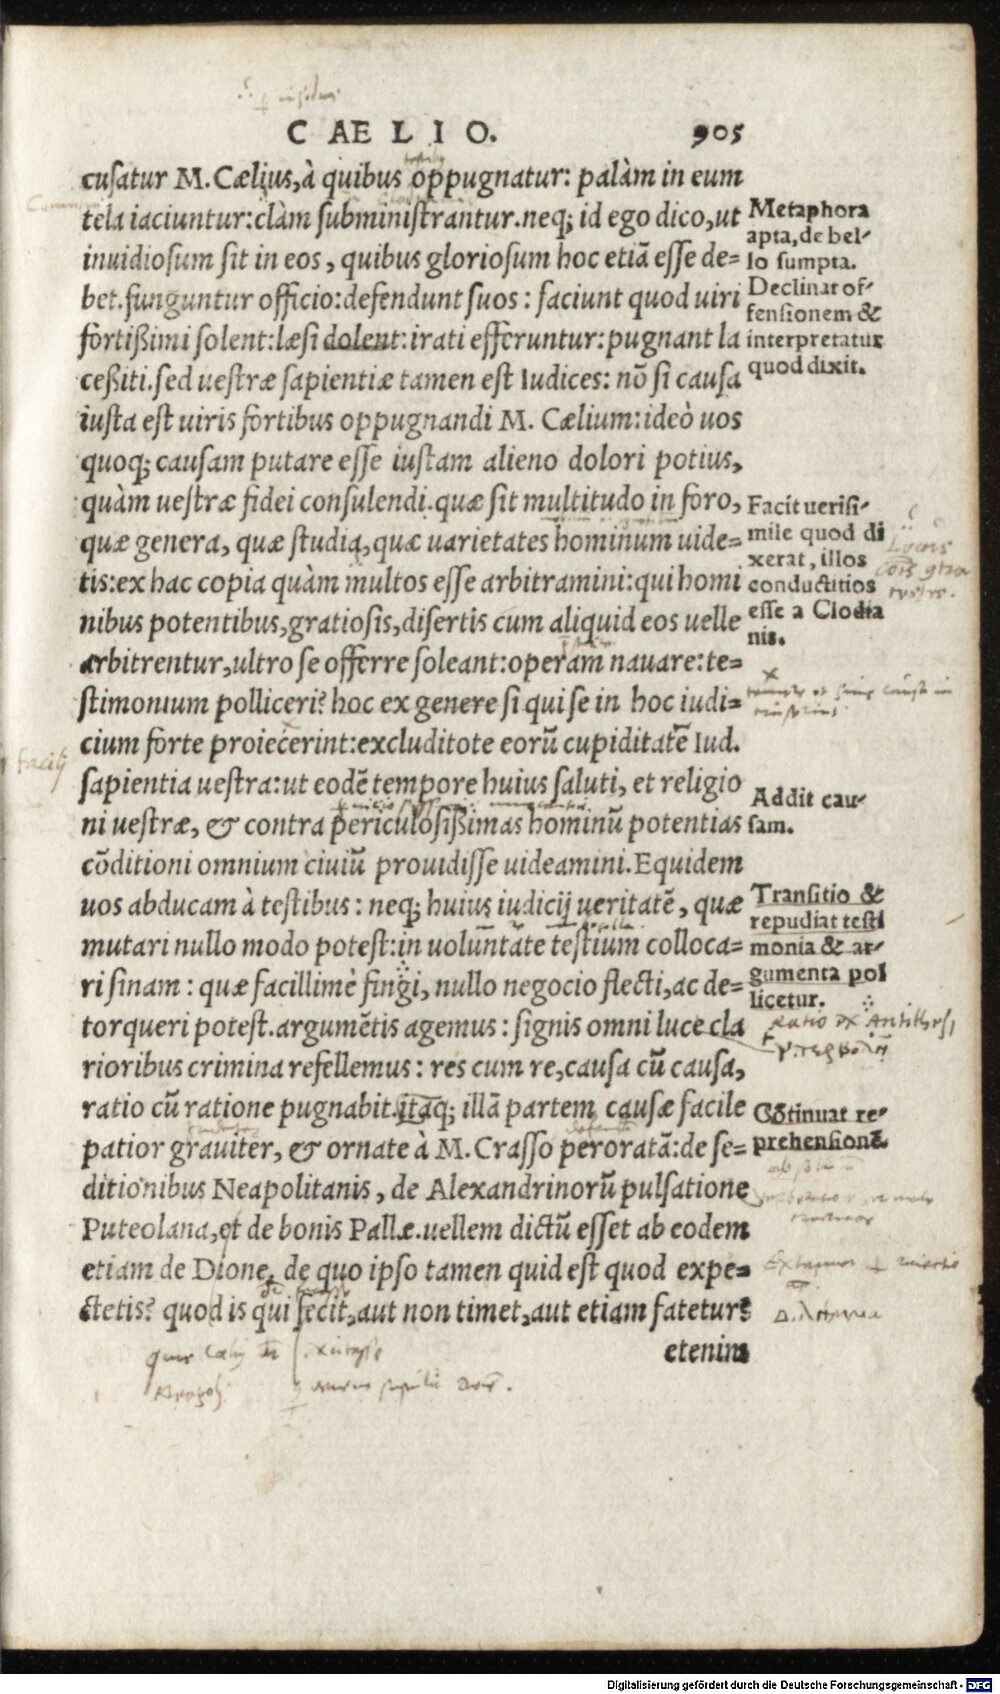 CAELIO. 905
cusatur M. Cælius, à quibus oppugnatur: palàm in eum
tela iaciuntur: clàm subministrantur. neq; id ego dico, ut
inuidiosum sit in eos, quibus gloriosum hoc etiã esse de=
bet. funguntur officio: defendunt suos: faciunt quod uiri
fortißimi solent: læsi dolent: irati efferuntur: pugnant la
ceßiti. sed uestræ sapientiæ tamen est Iudices: nõ si causa
iusta est uiris fortibus oppugnandi M. Cælium: ideò uos
quoq; causam putare esse iustam alieno dolori potius,
quàm uestræ fidei consulendi. quæ sit multitudo in foro,
quæ genera, quæ studia, quæ uarietates hominum uide=
tis: ex hac copia quàm multos esse arbitramini: qui homi
nibus potentibus, gratiosis, disertis cum aliquid eos uelle
arbitrentur, ultro se offerre soleant: operam nauare: te=
stimonium polliceri? hoc ex genere si qui se in hoc iudi=
cium forte proiecerint: excluditote eorũ cupiditatẽ Iud.
sapientia uestra: ut eodẽ tempore huius saluti, et religio
ni uestræ, & contra periculosißimas hominũ potentias
cõditioni omnium ciuiũ prouidisse uideamini. Equidem
uos abducam à testibus: neq; huius iudicij ueritatẽ, quæ
mutari nullo modo potest: in uoluntate testium colloca=
ri sinam: quæ facillimè fingi, nullo negocio flecti, ac de=
torqueri potest. argumẽtis agemus: signis omni luce cla
rioribus crimina refellemus: res cum re, causa cũ causa,
ratio cũ ratione pugnabit. itaq; illã partem causæ facile
patior grauiter, & ornate à M. Crasso peroratã: de se=
ditionibus Neapolitanis, de Alexandrinorũ pulsatione
Puteolana, et de bonis Pallæ. uellem dictũ esset ab eodem
etiam de Dione, de quo ipso tamen quid est quod expe=
ctetis? quod is qui fecit, aut non timet, aut etiam fatetur:
etenim
Metaphora
apta, de bel-
lo sumpta.
Declinat of-
fensionem &
interpretatur
quod dixit.
Facit uerisi-
mile quod di
xerat, illos
conductitios
esse a Clodia
nis.
Addit cau-
sam.
Transitio &
repudiat testi
monia & ar-
gumenta pol
licetur.
Ratio
Cõtinuat re-
prehensionẽ.
facilis